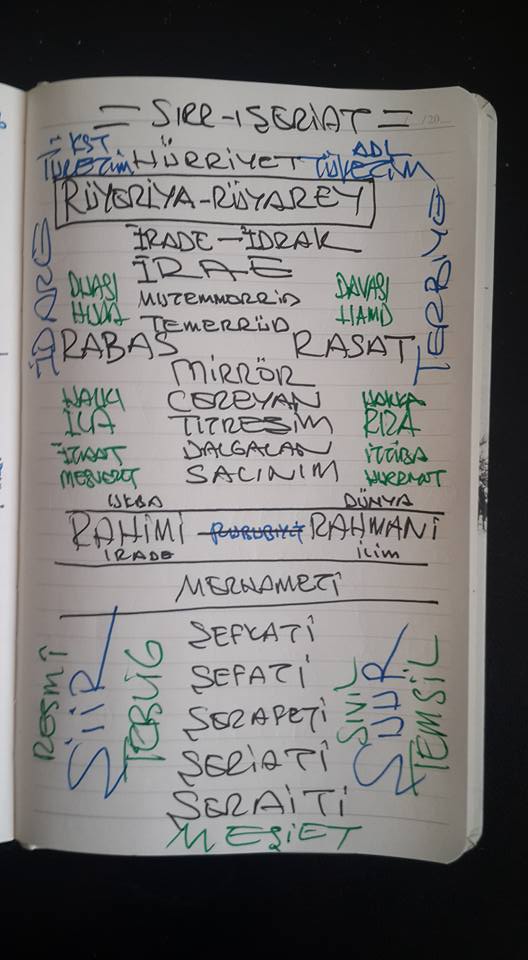 = SIRR-I ŞERİAT =
/ /20
KST ADL
ÜRETİM HÜRRİYET TÜKETİM
RÜYERİYA-RÜYAREY
İDARE TERBİYE
İRADE - İDRAK
İRAE
DUASI MUTEMMERRİD DAVASI
HUDA TEMERRÜD HAMD
RABAS RASAT
MİRRÖR
HALKI CEREYAN HAKKA
İLA TİTREŞİM RIZA
İTAAT DALGALAN İTTİBA
MEŞVERET SALINIM HÜRRİYET
UKBA DÜNYA
RAHİMİ RUBUBİYET RAHMANİ
İRADE İLİM
MERHAMETİ
RESMİ ŞİİR TEBLİĞ SİVİL ŞUUR TEMSİL
ŞEFKATİ
ŞEFATİ
ŞERAFETİ
ŞERİATİ
ŞERAİTİ
MEŞİET